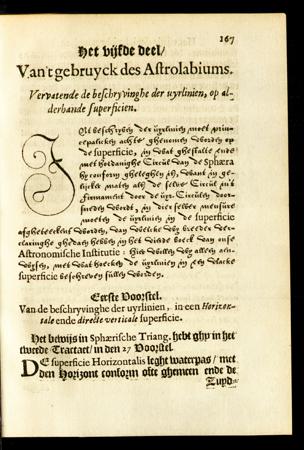 167
Het vijfde deel/
Van't gebruyck des Astrolabiums.
Vervatende de beschryvinghe der uyrlinien, op al-
derhande superficien.
beschryven der uyrlinien moet prin-
cepalicken achte ghenomen worden op
de superficie, in wat ghestalte ende
met hoedanighe Circul van de Sphæra
hy conform gheleghen is, want in ge-
lijcker maten als de selve Circul in't
firmament door de uyr-Circulen door-
sneden wordt, in dier selver
moeten de uyrlinien in de superficie
afgheteeckent worden, van welcke wy breeder ver-
claringhe ghedaen hebben in het derde boeck van onse
Astronomische Institutie: Hier willen wy alleen aen-
wijsen, met wat hoecken de uyrlinien in een vlacke
superficie beschreven sullen worden.
Eerste Voorstel.
Van de beschryvinghe der uyrlinien, in een Horizon-
tale ende directe verticale superficie.
Het bewijs in Sphærische Triang. hebt ghy in het
tweede Tractaet/ in den 27 Voorstel.
DE superficie Horizontalis leght waterpas/ met
den Horizont conform ofte ghemeen ende de
Zuyd-